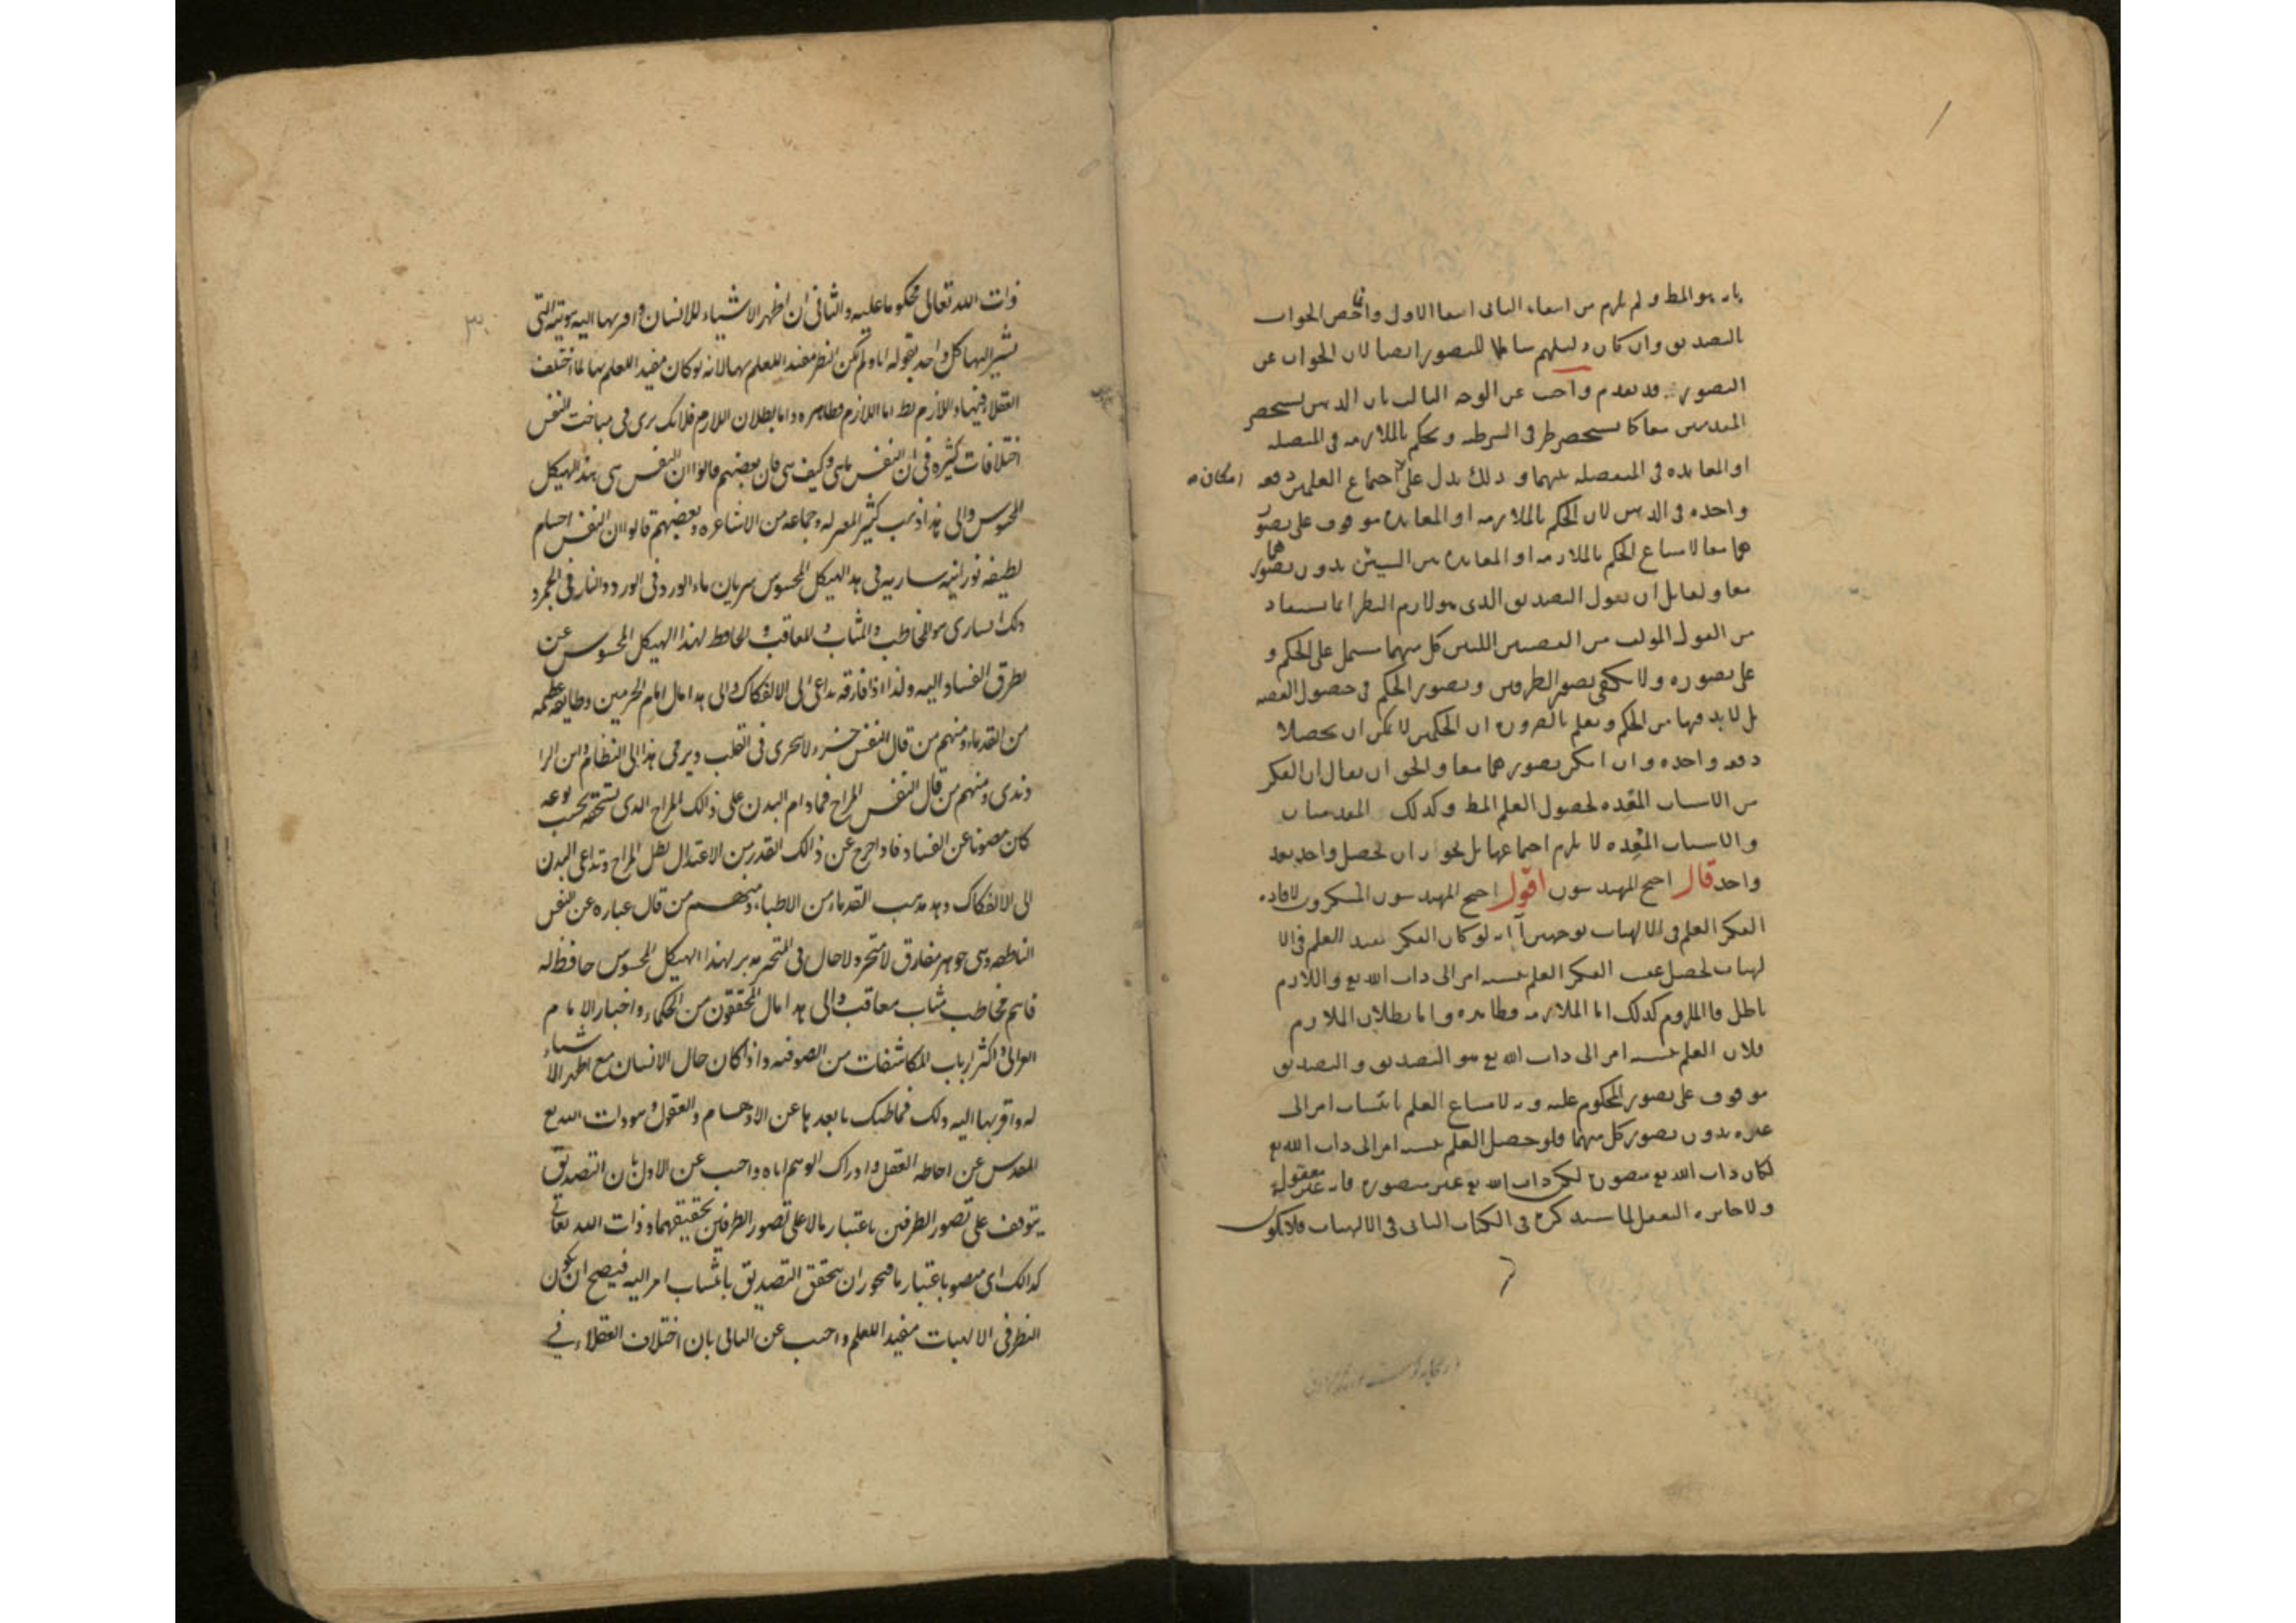 بانه هو المط ولم يلزم من انتفاء الثانى انتفا الاول وانما خص الجواب
بالتصديق وان كان دليلهم شاملا للتصور ايضا لان الجواب عن
التصور قد تقدم واجيب عن الوجه الثالث بان الذهن يستحضر
المقدمتين معا كما يستحضر طرفى الشرطيه ويحكم بالملازمه فى المتصله
او المعانده فى المنفصله بينهما وذلك يدل على اجتماع العلمين دفعه
امكان
واحده فى الذهن لان الحكم بالملازمه او المعانده موقوف على تصور
هما معا لامتناع الحكم بالملازمه او المعانده بين الشيئين بدون تصورهما
معا ولقايل ان يقول التصديق الذى هو لازم النظر انما يستفاد
من القول المولف من القضيتين اللتين كل منهما مشتمل على الحكم و
على تصوره ولا يكفى تصور الطرفين وتصور الحكم فى حصول القضيه
بل لا بد فيها من الحكم ونعلم بالضروره ان الحكمين لا يمكن ان يحصلا
دفعه واحده وان امكن تصورهما معا والحق ان يقال ان الفكر
من الاسباب المعده لحصول العلم المط وكذلك المقدمتان
والاسباب المعده لا يلزم اجتماعها بل يجوز ان يحصل واحد بعد
واحد قال احتج المهندسون اقول احتج المهندسون المنكرون لافاده
الفكر العلم فى الالهيات بوجهين آ انه لو كان الفكر يفيد العلم فى الا
لهيات لحصل عقيب الفكر العلم بنسبه امر الى ذات الله تع واللازم
باطل فالملزوم كذلك اما الملازمه فظاهره واما بطلان اللازم
فلان العلم بنسبه امر الى ذات الله تع هو التصديق والتصديق
موقوف على تصور المحكوم عليه وبه لامتناع العلم بانتساب امر الى
غيره بدون تصور كل منهما فلو حصل العلم بنسبه امر الى ذات الله تع
لكان ذات الله تع متصوره لكن ذات الله تع غير متصوره فانه غير معقوله
ولا جايزه التعقل لما سنذكره فى الكتاب الثانى فى الالهيات فلا يكون
ذات الله تعالى محكوما عليه والثانى ان اظهر الاشياء للانسان واقربها اليه هويته التى
يشير اليها كل واحد بقوله انا ولم يكن النظر مفيدا للعلم بها لانه لو كان مفيدا للعلم بها لما اختلف
العقلا فيها واللازم بط اما اللازم فظاهره واما بطلان اللازم فلانك ترى فى مباحث النفس
اختلافات كثيره فى ان النفس ما هى وكيف هى فان بعضهم قالوا ان النفس هى هذا الهيكل
المحسوس والى هذا ذهب كثير المعتزله وجماعه من الاشاعره وبعضهم قالوا ان النفس اجسام
لطيفه نورانيه ساريه فى هذا الهيكل المحسوس سريان ماء الورد فى الورد والنار فى الجمر و
ذلك السارى هو المخاطب والمثاب والمعاقب والحافظ لهذا الهيكل المحسوس عن
تطرق الفساد اليه ولذا اذا فارقه تداعى الى الانفكاك والى هذا مال امام الحرمين وطايفه عظيمه
من القدماء ومنهم من قال النفس جزء لا يتجزى فى القلب ويرمى هذا الى النظام وابن الرا
وندى ومنهم من قال النفس المزاج فمادام البدن على ذالك المزاج الذى يستحقه بحسب نوعه
كان مصونا عن الفساد فاذا خرج عن ذالك القدر من الاعتدال بطل المزاج وتداعى البدن
الى الانفكاك وهذا مذهب القدماء من الاطباء ومنهم من قال عباره عن النفس
الناطقه وهى جوهر مفارق لا متحيز ولا حال فى المتحيز مدبر لهذا الهيكل المحسوس حافظ له
فاهم مخاطب مثاب معاقب والى هذا مال المحققون من الحكماء واختيار الامام
الغزالى واكثر ارباب المكاشفات من الصوفيه واذا كان حال الانسان مع اظهر الاشياء
له واقربها اليه ذلك فما ظنك بابعدها عن الاوهام والعقول وهو ذات الله تع
المقدس عن احاطه العقل وادراك الوهم اياه واجيب عن الاول بان التصديق
يتوقف على تصور الطرفين باعتبار ما لا على تصور الطرفين بحقيقتهما وذات الله تعالى
كذالك اى متصور باعتبار ما فيجوز ان يتحقق التصديق بانتساب امر اليه فيصح ان يكون
النظر فى الالهيات مفيدا للعلم واجيب عن الثانى بان اختلاف العقلاء فى